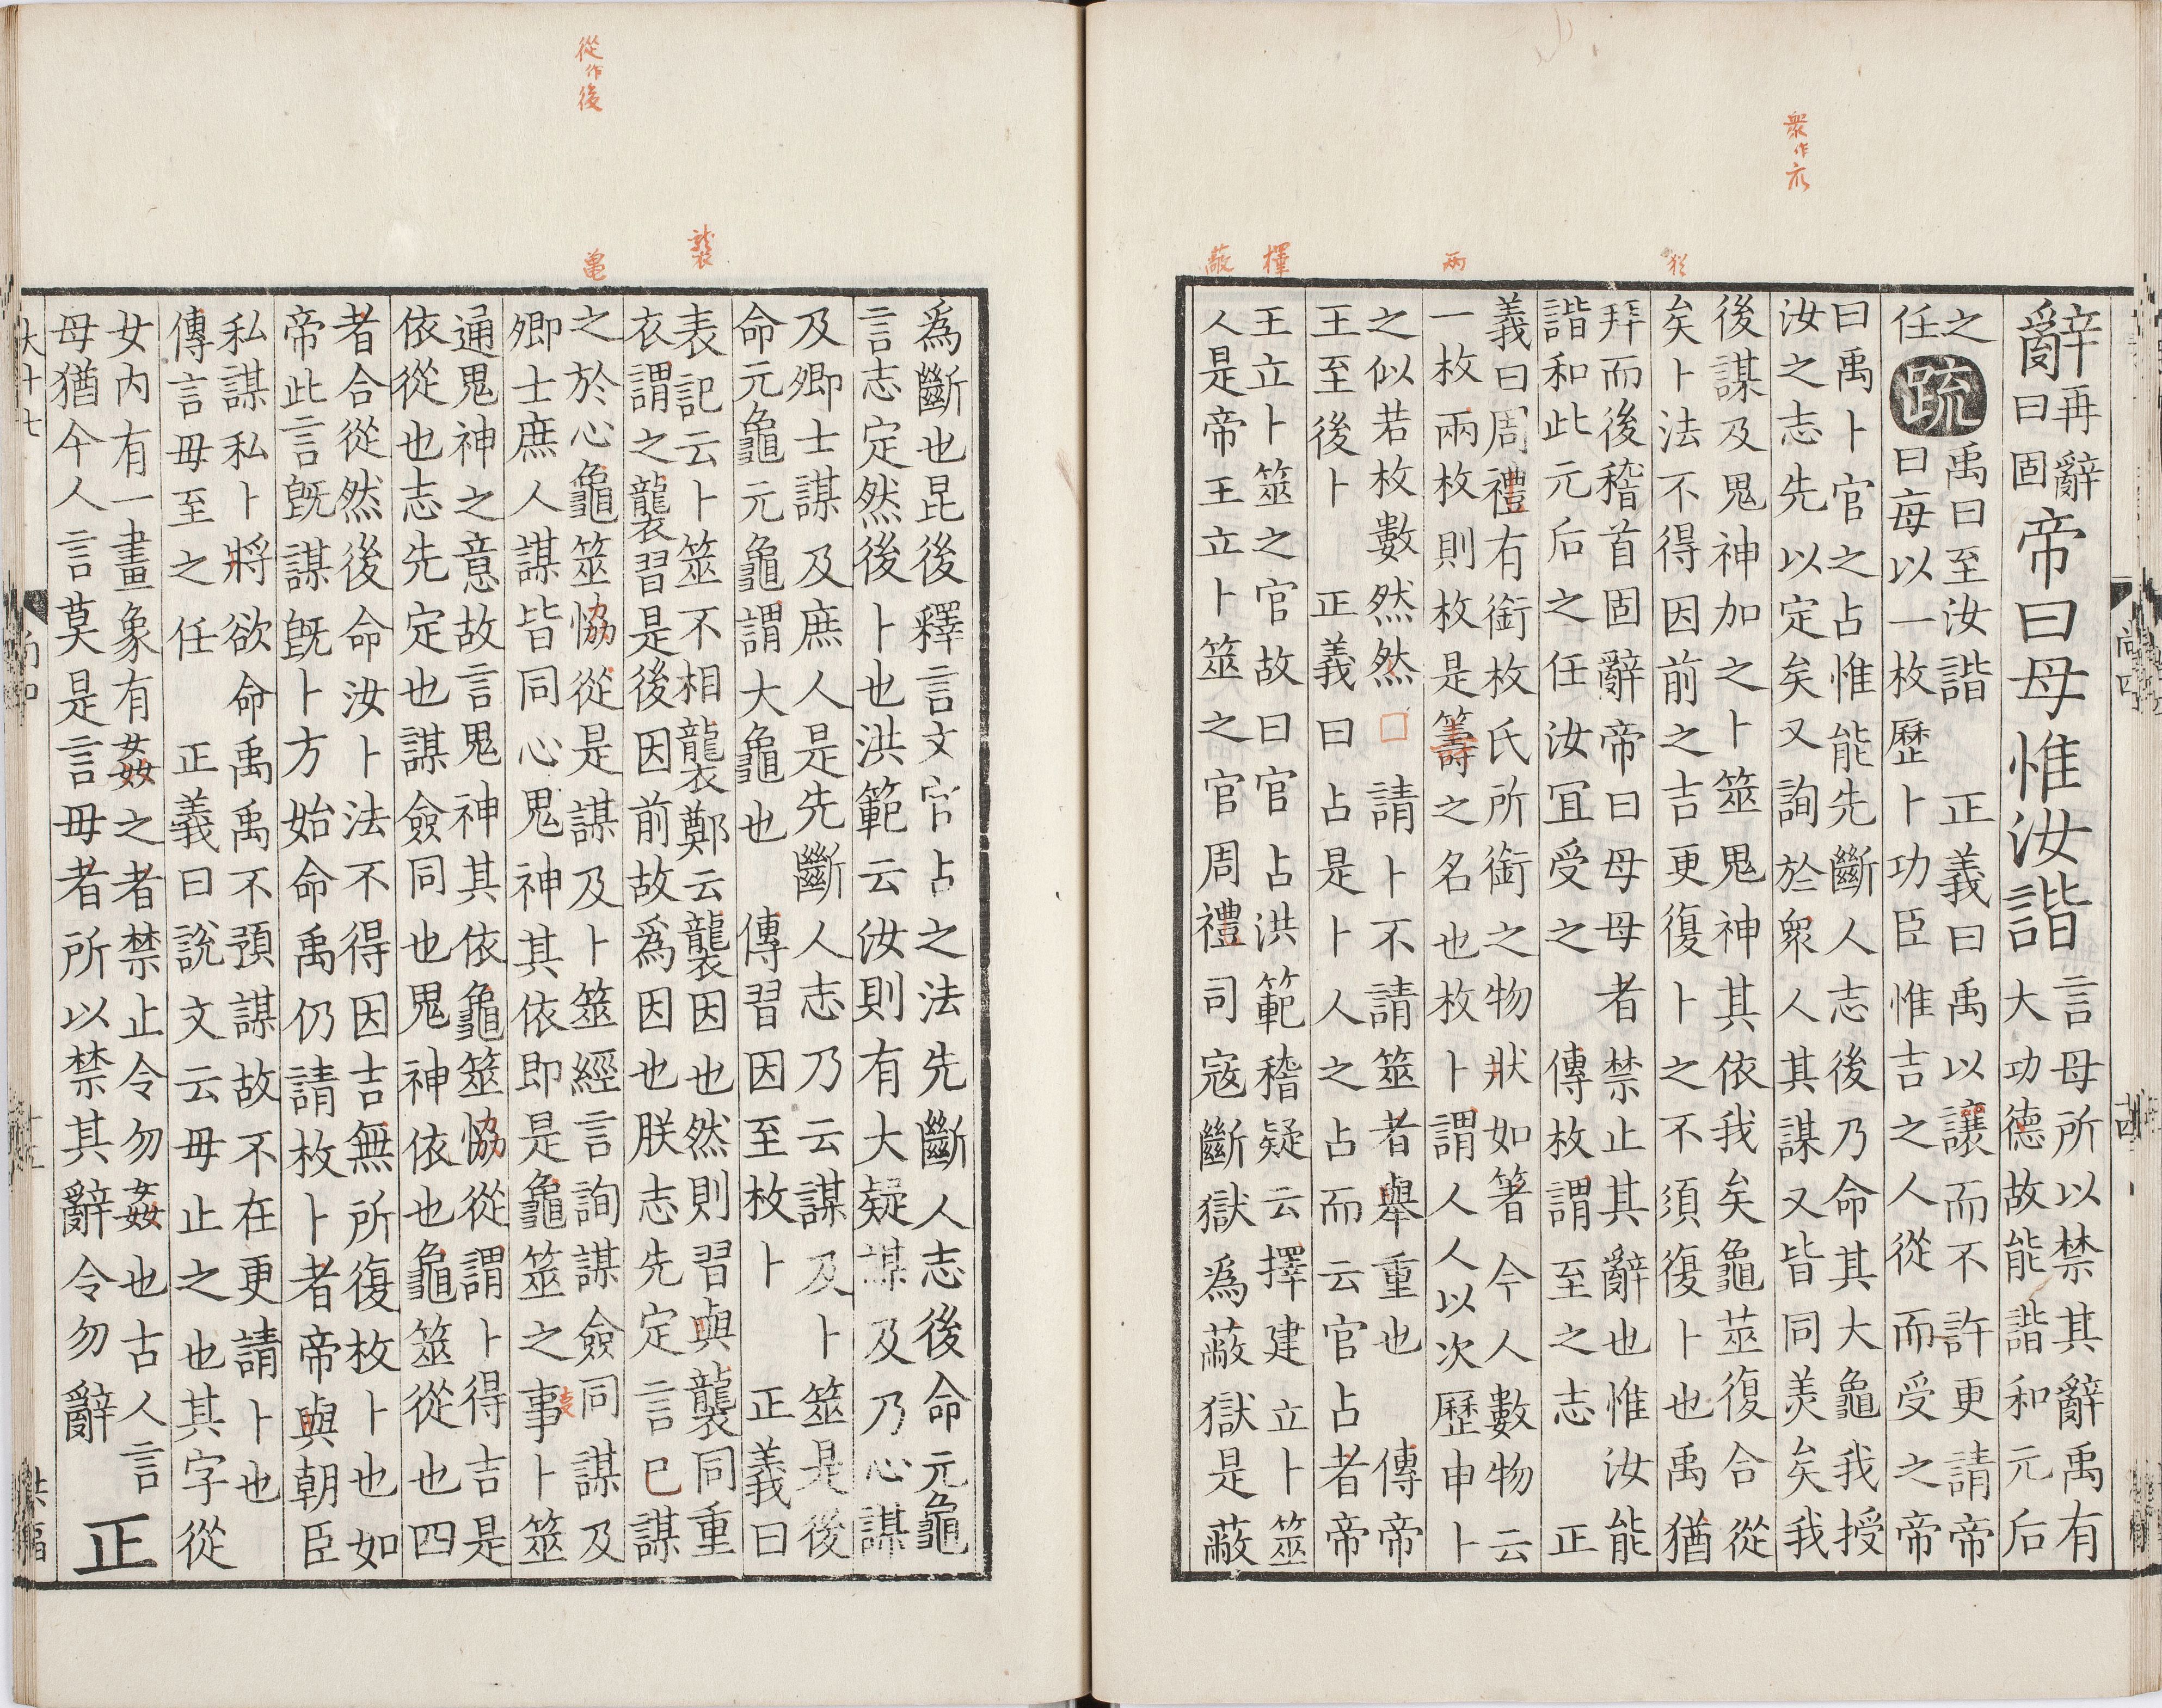 衆作㐺
犹
兩
擇
蔽
辭再辭曰固帝曰毋惟汝諧言毋所以禁其辭禹有大功德故能諧和元后
之任疏禹曰至汝諧　正義曰禹以讓而不許更請帝曰每以一枚歷卜功臣惟吉之人從而受之帝
曰禹卜官之占惟能先斷人志後乃命其大龜我授
汝之志先以定矣又詢於衆人其謀又皆同美矣我
後謀及鬼神加之卜筮鬼神其依我矣龜筮復合從
矣卜法不得因前之吉更復卜之不須復卜也禹猶
拜而後稽首固辭帝曰毋毋者禁止其辭也惟汝能
諧和此元后之任汝宜受之　傳枚謂至之志　正
義曰周禮有銜枚氏所銜之物狀如箸今人數物云
一枚兩枚則枚是籌之名也枚卜謂人人以次歷申卜
之似若枚數然然　請卜不請筮者舉重也　傳帝
王至後卜　正義曰占是卜人之占而云官占者帝
王立卜筮之官故曰官占洪範稽疑云擇建立卜筮
人是帝王立卜筮之官周禮司寇斷獄爲蔽獄是蔽
襲
從作後
亀
爲斷也昆後釋言文官占之法先斷人志後命元龜
言志定然後卜也洪範云汝則有大疑謀及乃心謀
及卿士謀及庶人是先斷人志乃云謀及卜筮是後
命元龜元龜謂大龜也　傳習因至枚卜　正義曰
表記云卜筮不相襲鄭云襲因也然則習與襲同重
衣謂之襲習是後因前故爲因也朕志先定言已謀
之於心龜筮協從是謀及卜筮經言詢謀僉同謀及
卿士庶人謀皆同心鬼神其依即是龜筮之事卜筮
通鬼神之意故言鬼神其依龜筮協從謂卜得吉是
依從也志先定也謀僉同也鬼神依也龜筮從也四
者合從然後命汝卜法不得因吉無所復枚卜也如
帝此言既謀既卜方始命禹仍請枚卜者帝與朝臣
私謀私卜將欲命禹禹不預謀故不在更請卜也
傳言毋至之任　正義曰説文云毋止之也其字從
女内有一畫象有姦之者禁止令勿姦也古人言
母猶今人言莫是言毋者所以禁其辭令勿辭正